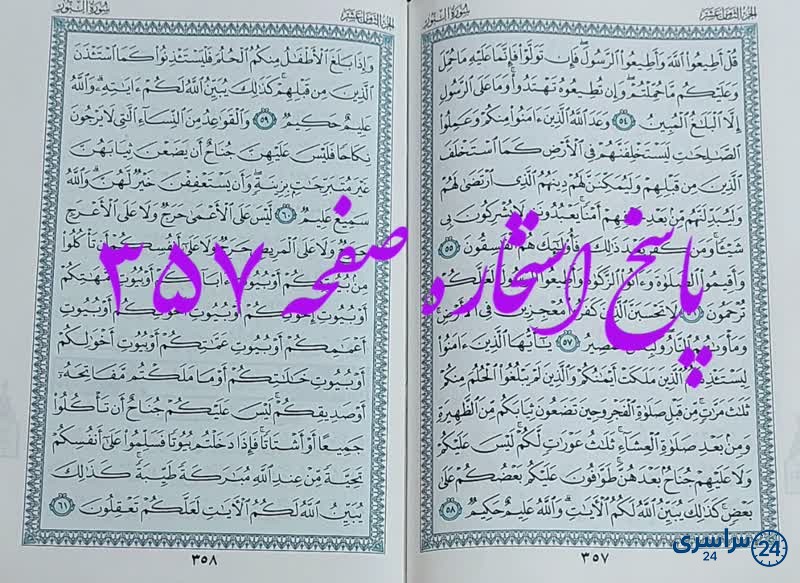 الجزء الثامن عشر
سورة النور
قُلْ أَطِيعُوا۟ ٱللَّهَ وَأَطِيعُوا۟ ٱلرَّسُولَ ۖ فَإِن تَوَلَّوْا۟ فَإِنَّمَا عَلَيْهِ مَا حُمِّلَ
وَعَلَيْكُم مَّا حُمِّلْتُمْ ۖ وَإِن تُطِيعُوهُ تَهْتَدُوا۟ ۚ وَمَا عَلَى ٱلرَّسُولِ
إِلَّا ٱلْبَلَٰغُ ٱلْمُبِينُ ٥٤ وَعَدَ ٱللَّهُ ٱلَّذِينَ ءَامَنُوا۟ مِنكُمْ وَعَمِلُوا۟
ٱلصَّٰلِحَٰتِ لَيَسْتَخْلِفَنَّهُمْ فِى ٱلْأَرْضِ كَمَا ٱسْتَخْلَفَ
ٱلَّذِينَ مِن قَبْلِهِمْ وَلَيُمَكِّنَنَّ لَهُمْ دِينَهُمُ ٱلَّذِى ٱرْتَضَىٰ لَهُمْ
وَلَيُبَدِّلَنَّهُم مِّنۢ بَعْدِ خَوْفِهِمْ أَمْنًا ۚ يَعْبُدُونَنِى لَا يُشْرِكُونَ بِى
شَيْـًٔا ۚ وَمَن كَفَرَ بَعْدَ ذَٰلِكَ فَأُو۟لَٰٓئِكَ هُمُ ٱلْفَٰسِقُونَ ٥٥
وَأَقِيمُوا۟ ٱلصَّلَوٰةَ وَءَاتُوا۟ ٱلزَّكَوٰةَ وَأَطِيعُوا۟ ٱلرَّسُولَ لَعَلَّكُمْ
تُرْحَمُونَ لَا تَحْسَبَنَّ ٱلَّذِينَ كَفَرُوا۟ مُعْجِزِينَ فِى ٱلْأَرْضِ ۚ
وَمَأْوَىٰهُمُ ٱلنَّارُ ۖ وَلَبِئْسَ ٱلْمَصِيرُ ٥٧ يَٰٓأَيُّهَا ٱلَّذِينَ ءَامَنُوا۟
لِيَسْتَـْٔذِنكُمُ ٱلَّذِينَ مَلَكَتْ أَيْمَٰنُكُمْ وَٱلَّذِينَ لَمْ يَبْلُغُوا۟ ٱلْحُلُمَ مِنكُمْ
ثَلَٰثَ مَرَّٰتٍ ۚ مِّن قَبْلِ صَلَوٰةِ ٱلْفَجْرِ وَحِينَ تَضَعُونَ ثِيَابَكُم مِّنَ ٱلظَّهِيرَةِ
وَمِنۢ بَعْدِ صَلَوٰةِ ٱلْعِشَآءِ ۚ ثَلَٰثُ عَوْرَٰتٍ لَّكُمْ ۚ لَيْسَ عَلَيْكُمْ
وَلَا عَلَيْهِمْ جُنَاحٌۢ بَعْدَهُنَّ ۚ طَوَّٰفُونَ عَلَيْكُم بَعْضُكُمْ عَلَىٰ
بَعْضٍ ۚ كَذَٰلِكَ يُبَيِّنُ ٱللَّهُ لَكُمُ ٱلْـَٔايَٰتِ ۗ وَٱللَّهُ عَلِيمٌ حَكِيمٌ ٥٨
٣٥٧
الجزء الثامن عشر
سورة النور
وَإِذَا بَلَغَ ٱلْأَطْفَٰلُ مِنكُمُ ٱلْحُلُمَ فَلْيَسْتَـْٔذِنُوا۟ كَمَا ٱسْتَـْٔذَنَ
ٱلَّذِينَ مِن قَبْلِهِمْ ۚ كَذَٰلِكَ يُبَيِّنُ ٱللَّهُ لَكُمْ ءَايَٰتِهِۦ ۗ وَٱللَّهُ
عَلِيمٌ حَكِيمٌ ٥٩ وَٱلْقَوَٰعِدُ مِنَ ٱلنِّسَآءِ ٱلَّٰتِى لَا يَرْجُونَ
نِكَاحًا فَلَيْسَ عَلَيْهِنَّ جُنَاحٌ أَن يَضَعْنَ ثِيَابَهُنَّ
غَيْرَ مُتَبَرِّجَٰتٍۭ بِزِينَةٍ ۖ وَأَن يَسْتَعْفِفْنَ خَيْرٌ لَّهُنَّ ۗ وَٱللَّهُ
سَمِيعٌ عَلِيمٌ ٦٠ لَّيْسَ عَلَى ٱلْأَعْمَىٰ حَرَجٌ وَلَا عَلَى ٱلْأَعْرَجِ
حَرَجٌ وَلَا عَلَى ٱلْمَرِيضِ حَرَجٌ وَلَا عَلَىٰٓ أَنفُسِكُمْ أَن تَأْكُلُوا۟
مِنۢ بُيُوتِكُمْ أَوْ بُيُوتِ ءَابَآئِكُمْ أَوْ بُيُوتِ أُمَّهَٰتِكُمْ
أَوْ بُيُوتِ إِخْوَٰنِكُمْ أَوْ بُيُوتِ أَخَوَٰتِكُمْ أَوْ بُيُوتِ
أَعْمَٰمِكُمْ أَوْ بُيُوتِ عَمَّٰتِكُمْ أَوْ بُيُوتِ أَخْوَٰلِكُمْ
أَوْ بُيُوتِ خَٰلَٰتِكُمْ أَوْ مَا مَلَكْتُم مَّفَاتِحَهُۥٓ
أَوْ صَدِيقِكُمْ ۚ لَيْسَ عَلَيْكُمْ جُنَاحٌ أَن تَأْكُلُوا۟
جَمِيعًا أَوْ أَشْتَاتًا ۚ فَإِذَا دَخَلْتُم بُيُوتًا فَسَلِّمُوا۟ عَلَىٰٓ أَنفُسِكُمْ
تَحِيَّةً مِّنْ عِندِ ٱللَّهِ مُبَٰرَكَةً طَيِّبَةً ۚ كَذَٰلِكَ
يُبَيِّنُ ٱللَّهُ لَكُمُ ٱلْـَٔايَٰتِ لَعَلَّكُمْ تَعْقِلُونَ ٦١
٣٥٨
پاسخ استخاره صفحه ۳۵۷
سراسری 24
24